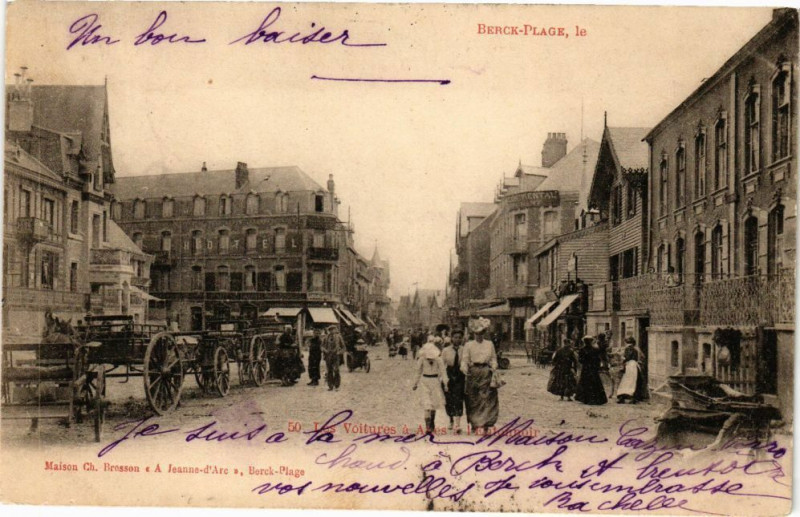 Un bon baiser
BERCK-PLAGE, le
HOTEL
50 Les Voitures à Anes
Je suis à la mer Maison
à Berck A bientôt
vos nouvelles Je vous embrasse
Rachelle
Maison Ch. Brosson « A Jeanne-d'Arc », Berck-Plage